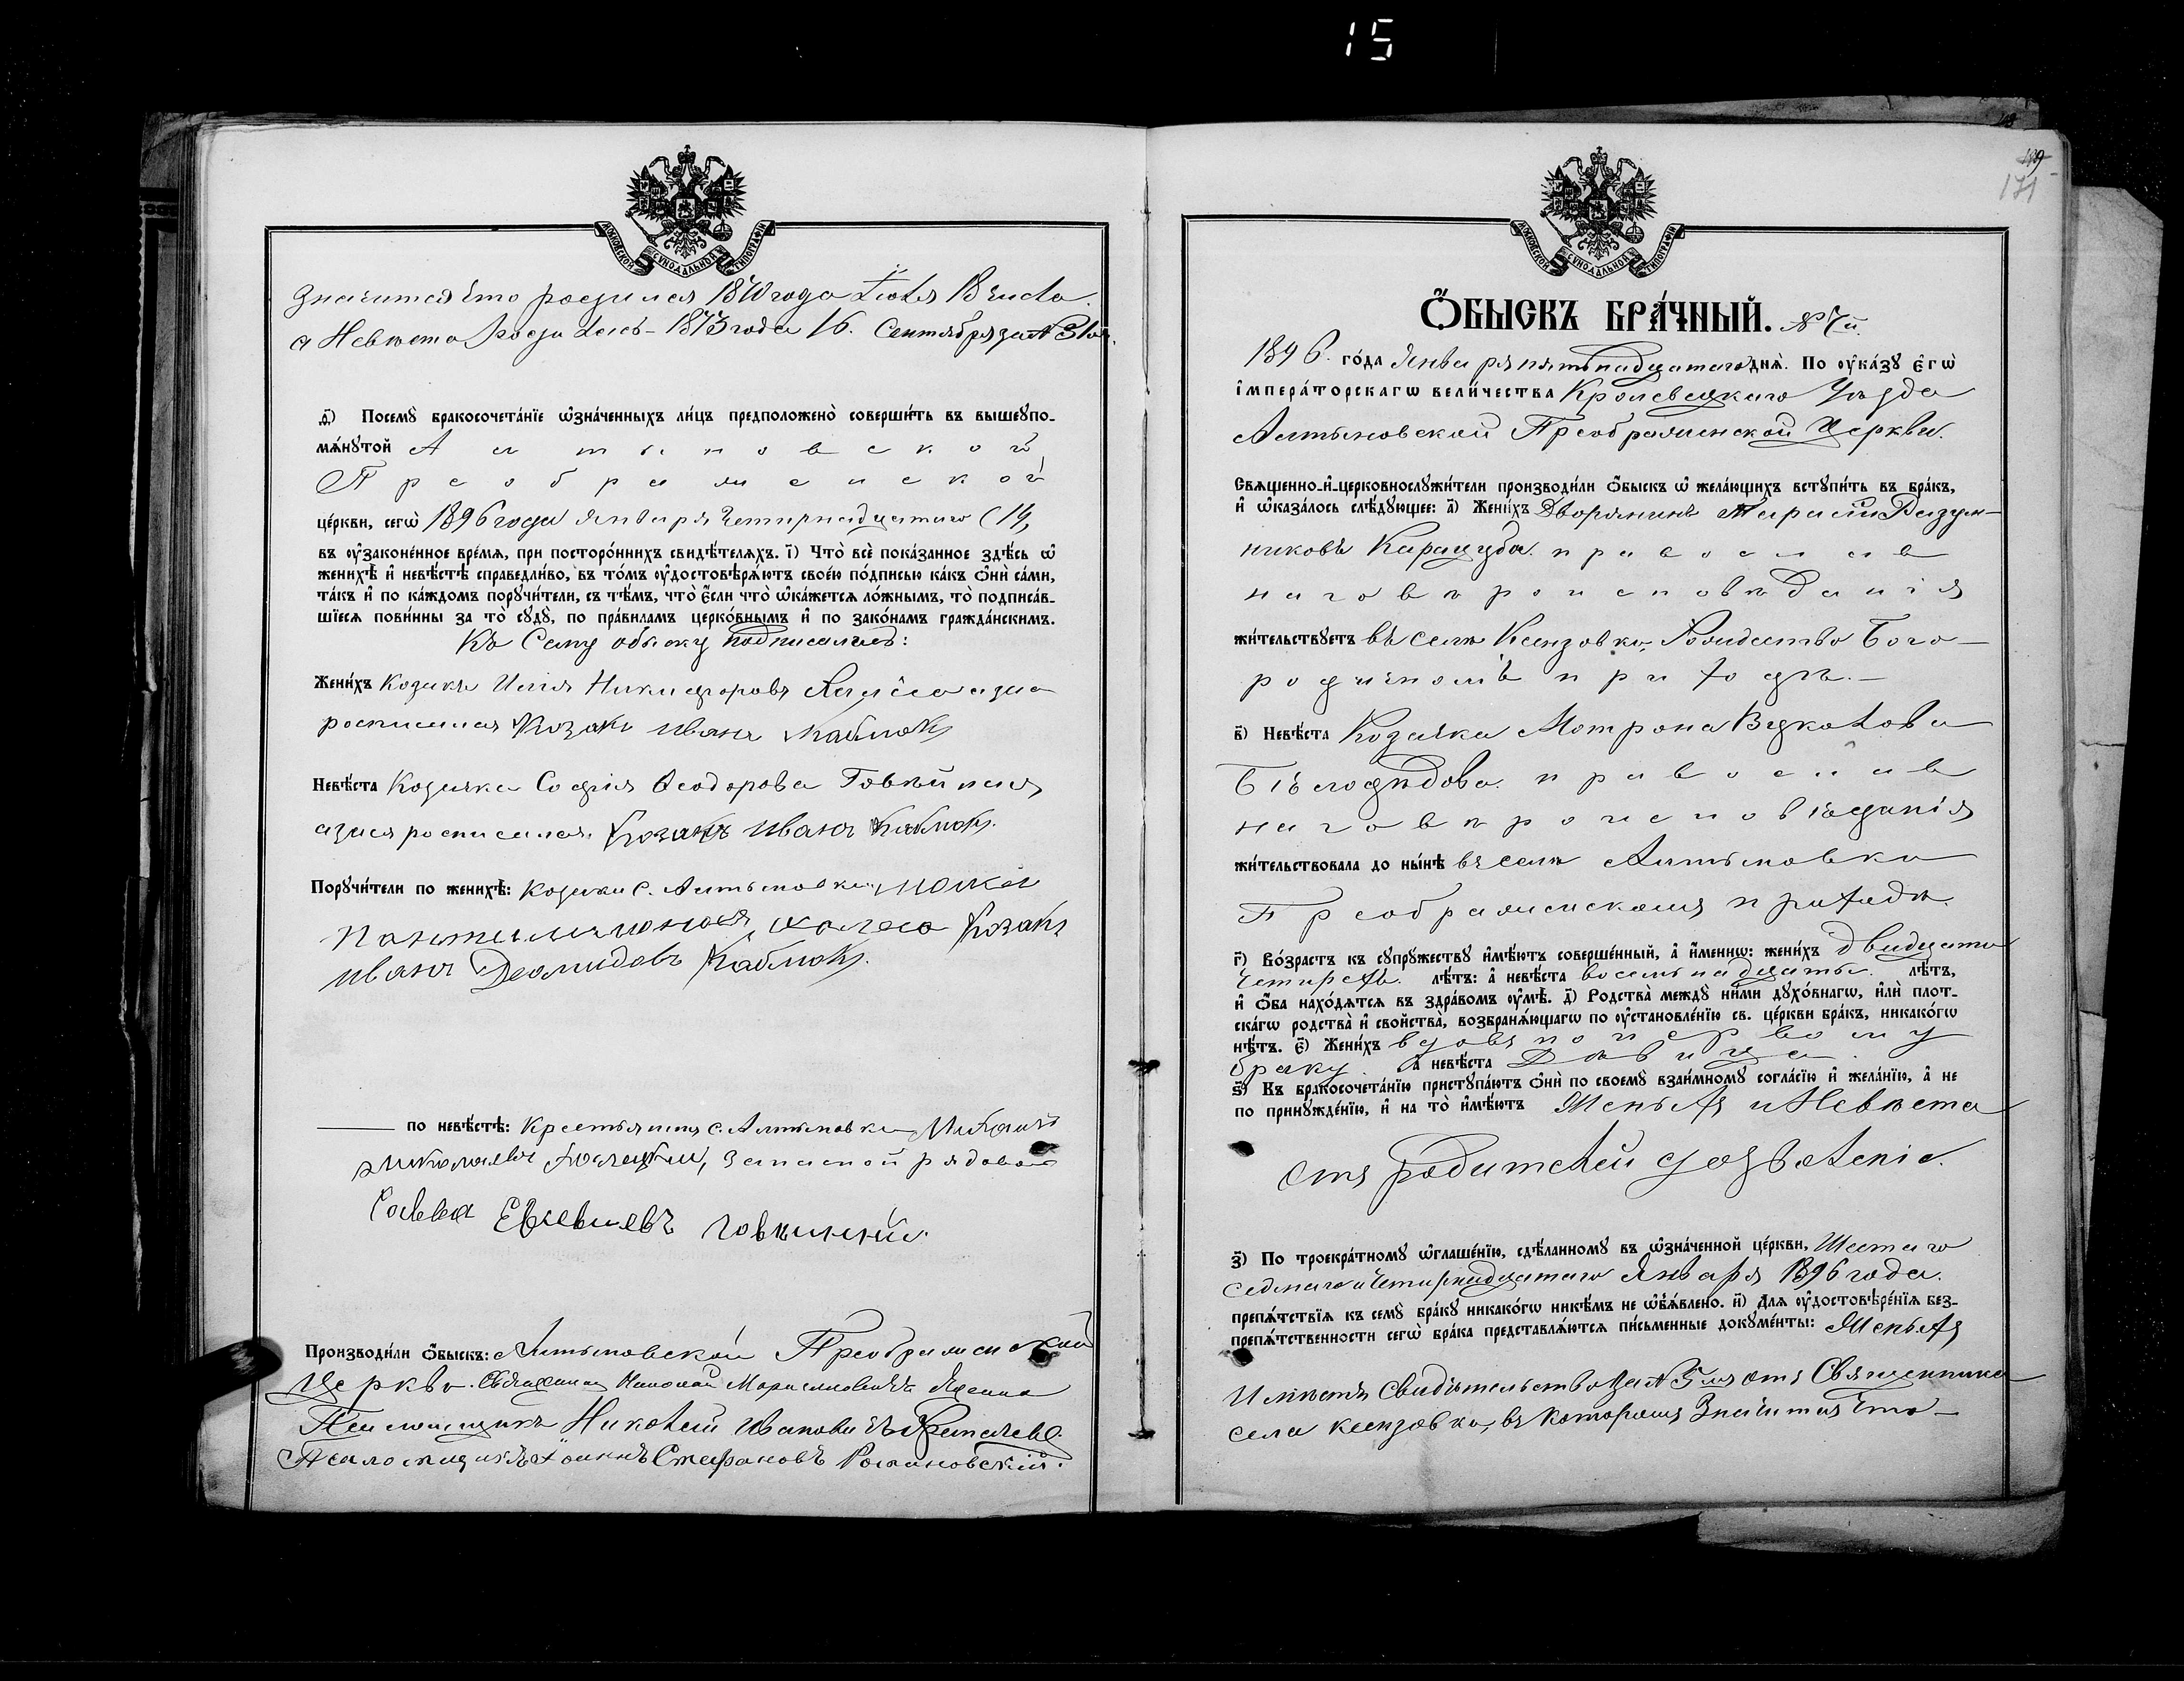 15
171
МОСКОВСКОЙ СУНОДАЛЬНОЙ ТИПОГРАФІИ
значится что родился 1870 года Іюля 18 числа.
а Невѣста родилась 1873 года 16. Сентября за №
Ѳ҃) Посемꙋ̀ бракосочета́нїе ѡ҆зна́ченныхъ ли́цъ предположено̀ соверши́ть въ вышеꙋпо-
мѧ́нꙋтой Алтыновской
Преображенской
це́ркви, сегѡ̀ 1896 года января четырнадцатаго (14,
въ оу҆законе́нное вре́мѧ, при посторо́ннихъ свидѣ́телѧхъ. і҃) Что̀ всѐ пока́занное здѣ́сь ѡ҆
женихѣ̀ и҆ невѣ́стѣ справедли́во, въ то́мъ оу҆достовѣрѧ́ютъ свое́ю по́дписью ка́къ ѻ҆нѝ са́ми,
та́къ и҆ по ка́ждомъ порꙋчи́тели, съ тѣ́мъ, что̀ є҆́сли что̀ ѡ҆ка́жетсѧ ло́жнымъ, то̀ подписа́в-
шїесѧ пови́нны за то̀ сꙋдꙋ̀, по пра́виламъ церко́внымъ и҆ по зако́намъ гражда́нскимъ.
Къ Сему обыску подписались:
Жени́хъ Козакъ Илія Никифоровъ а за
росписался Козакъ Иванъ Каблюкъ
Невѣ́ста Козачка Софія Ѳеодорова Говкиная
а за ея росписался. Козакъ Иванъ Каблюкъ.
Порꙋчи́тели по женихѣ̀: козаки с. Алтыновки
Козакъ
Иванъ Деомидовъ Каблюкъ.
по невѣ́стѣ: Крестьянинъ с. Алтыновки Михаилъ
Николаевъ , Запасной рядовой
Савва Евсевиевъ Говкиній.
Производи́ли ѻ҆́быскъ: Алтыновской Преображенской
Церкви. Священникъ Николай
Псаломщикъ Николай Ивановичъ
Псаломщикъ Іоаннъ Стефановъ Романовскій.
МОСКОВСКОЙ СУНОДАЛЬНОЙ ТИПОГРАФІИ
Ѻ҆́БЫСКЪ БРА́ЧНЫЙ. № 7й.
1896. го́да Января пятьнадцатаго днѧ̀. По оу҆ка́зꙋ є҆гѡ̀
і҆мпера́торскагѡ вели́чества Кролевецкаго Уѣзда
Алтыновской Преображенской Церкви.
Свѧщенно-и҆-церковнослꙋжи́тели производи́ли ѻ҆́быскъ ѡ҆ жела́ющихъ встꙋпи́ть въ бра́къ,
и҆ ѡ҆каза́лось слѣ́дꙋющее: а҃) Жени́хъ Дворянинъ Тарасій Разум-
никовъ Карацуба. православ
наго вѣроисповѣданія
жи́тельствꙋетъ въ селѣ Ксензовкѣ, Рождество Бого-
родичномъ приходѣ.
в҃) Невѣ́ста Козачка Мотрона Вуколова
Бѣлодѣдова. православ
наго вѣроисповѣданія
жи́тельствовала до ны́нѣ въ селѣ Алтыновки
Преображенскомъ приходѣ.
г҃) Во́зрастъ къ сꙋпрꙋ́жествꙋ и҆мѣ́ютъ соверше́нный, а҆ и҆́меннѡ: жени́хъ двадцати
четырехъ. лѣ́тъ: а҆ невѣ́ста восемьнадцать. лѣ́тъ,
и҆ ѻ҆́ба нахо́дѧтсѧ въ здра́вомъ оу҆мѣ̀. д҃) Родства̀ междꙋ̀ ни́ми дꙋхо́внагѡ, и҆лѝ плот-
ска́гѡ родства̀ и҆ свойства̀, возбранѧ́ющагѡ по оу҆становле́нїю св. це́ркви бра́къ, никако́гѡ
нѣ́тъ. є҃) Жени́хъ вдовъ по первому
браку. а҆ невѣ́ста Дѣвица.
ѕ҃) Къ бракосочета́нїю пристꙋпа́ютъ ѻ҆нѝ по своемꙋ̀ взаи́мномꙋ согла́сїю и҆ жела́нїю, а҆ не
по принꙋжде́нїю, и҆ на то̀ и҆мѣ́ютъ Женихъ и Невѣста
отъ родителей дозволеніе.
з҃) По троекра́тномꙋ ѡ҆глаше́нїю, сдѣ́ланномꙋ въ ѡ҆зна́ченной це́ркви, Шестаго
седмаго и четырнадцатаго Января 1896 года.
препѧ́тствїѧ къ семꙋ̀ бра́кꙋ никако́гѡ никѣ́мъ не ѡ҆б̾ѧ́влено. и҃) Длѧ оу҆достовѣре́нїѧ без-
препѧ́тственности сегѡ̀ бра́ка представлѧ́ютсѧ пи́сьменные докꙋме́нты: Женихъ
Имѣетъ свидѣтельство за № 5мъ отъ Священника
села ксензовки, въ которомъ Значится что